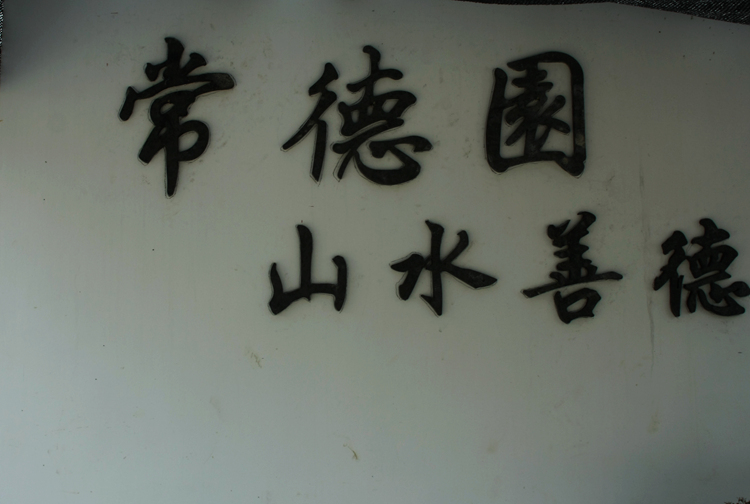 常德園
山水善德